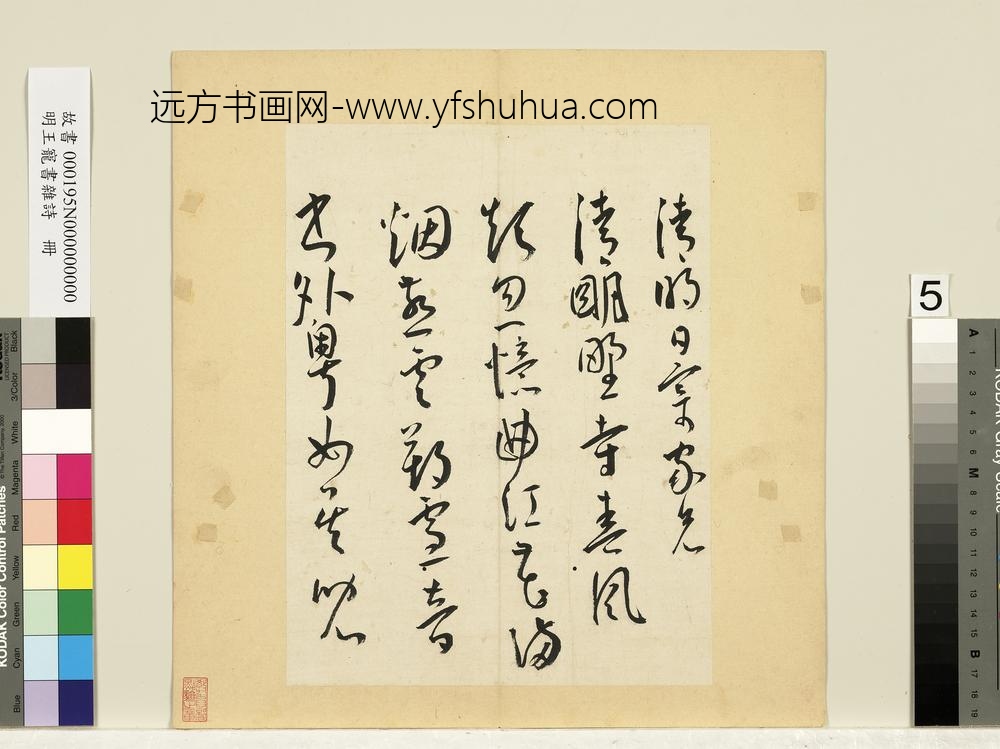 远方书画网-www.yfshuhua.com
故書 000195N000000000
明王寵書雜詩 冊
清明日寄家兄
清明野寺春風
起忽憶曲江花滿
烟燕雲朔雪音
書外 如
5
KODAK Color Control Patches
Blue Cyan Green Yellow Red Magenta White 3/Color Black
A 1 2 3 4 5 6 M 8 9 10 11 12 13 14 15 B 17 18 19